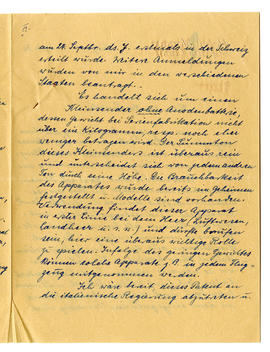 am 24. Septbr. ds. J. erstmals in der Schweiz
erteilt wurde. Weitere Anmeldungen
wurden von mir in den verschiedenen
Staaten beantragt.
Es handelt sich um einen
Kleinsender ohne Anodenbatterie
dessen Gewicht bei Serienfabrikation nicht
über ein Kilogramm, resp. noch eher
weniger betragen wird. Der Summton
dieses Kleinsenders ist überaus rein
und unterscheidet sich von jedem anderen
Ton durch seine Höhe. Die Brauchbarkeit
des Apparates wurde bereits im geheimen
festgestellt u. Modelle sind vorhanden.
Verwendung findet dieser Apparat
in erster Linie bei dem Heer (Luftwesen,
Landheer u. s. w.) und dürfte berufen
sein, hier eine überaus wichtige Rolle
zu spielen. Infolge des geringen Gewichtes
können solche Apparate z. B. in jedem Flug-
zeug mitgenommen werden.
Ich wäre bereit, dieses Patent an
die italienische Regierung abzutreten u.